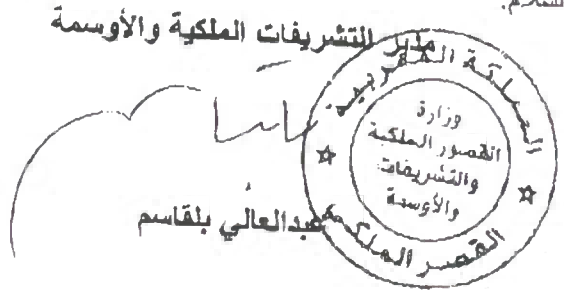 السلام.
مدير التشريفات الملكية والأوسمة
المملكة المغربية
وزارة
القصور الملكية
والتشريفات
والأوسمة
القصر الملكي
عبدالعالي بلقاسم